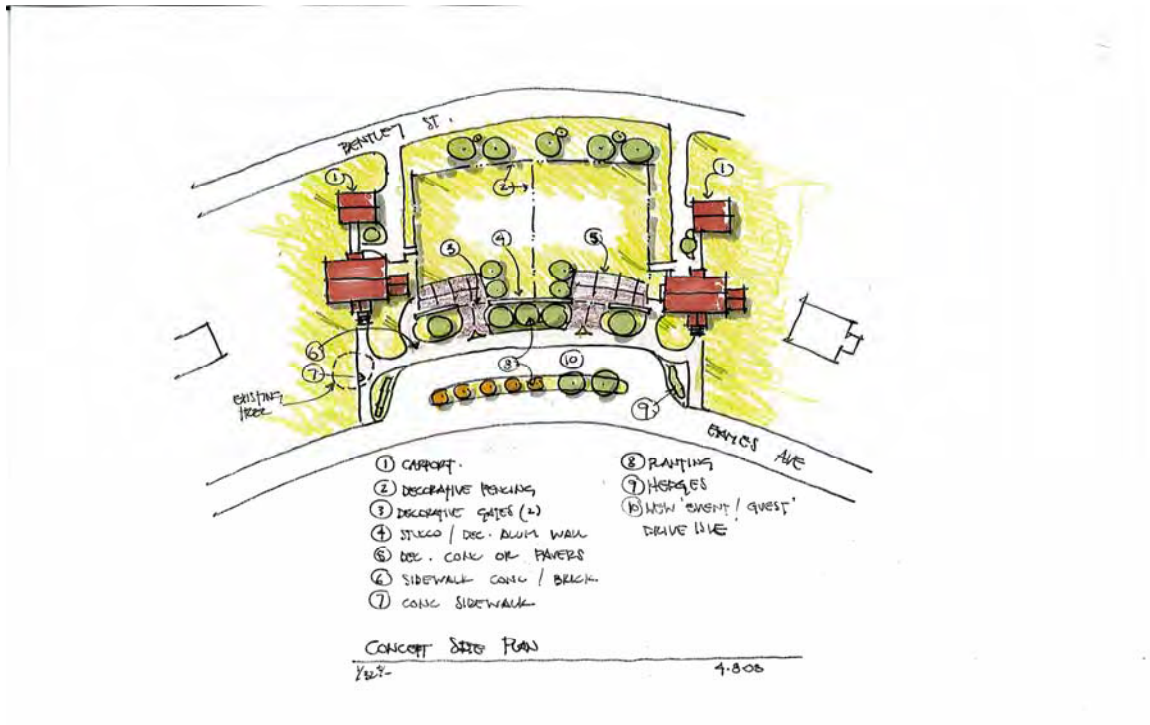 BENTLEY ST.
1
1
2
3
4
5
6
7
8
10
9
EXISTING
TREE
① CARPORT.
② DECORATIVE FENCING
③ DECORATIVE GATES (2)
④ STUCCO / DEC. ALUM WALL
⑤ DEC. CONC OR PAVERS
⑥ SIDEWALK CONC / BRICK
⑦ CONC SIDEWALK
⑧ PLANTING
⑨ HEDGES
⑩ NEW 'EVENT / GUEST'
DRIVE ISLE
AVE
CONCEPT SITE PLAN